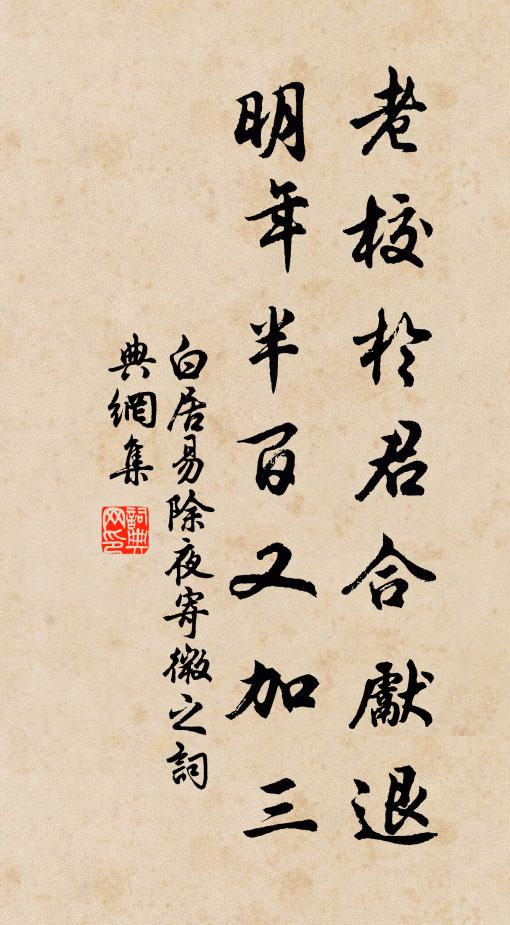 老校於君合獻退
明年半百又加三
白居易除夜寄微之詞
典網集
詞典
网印